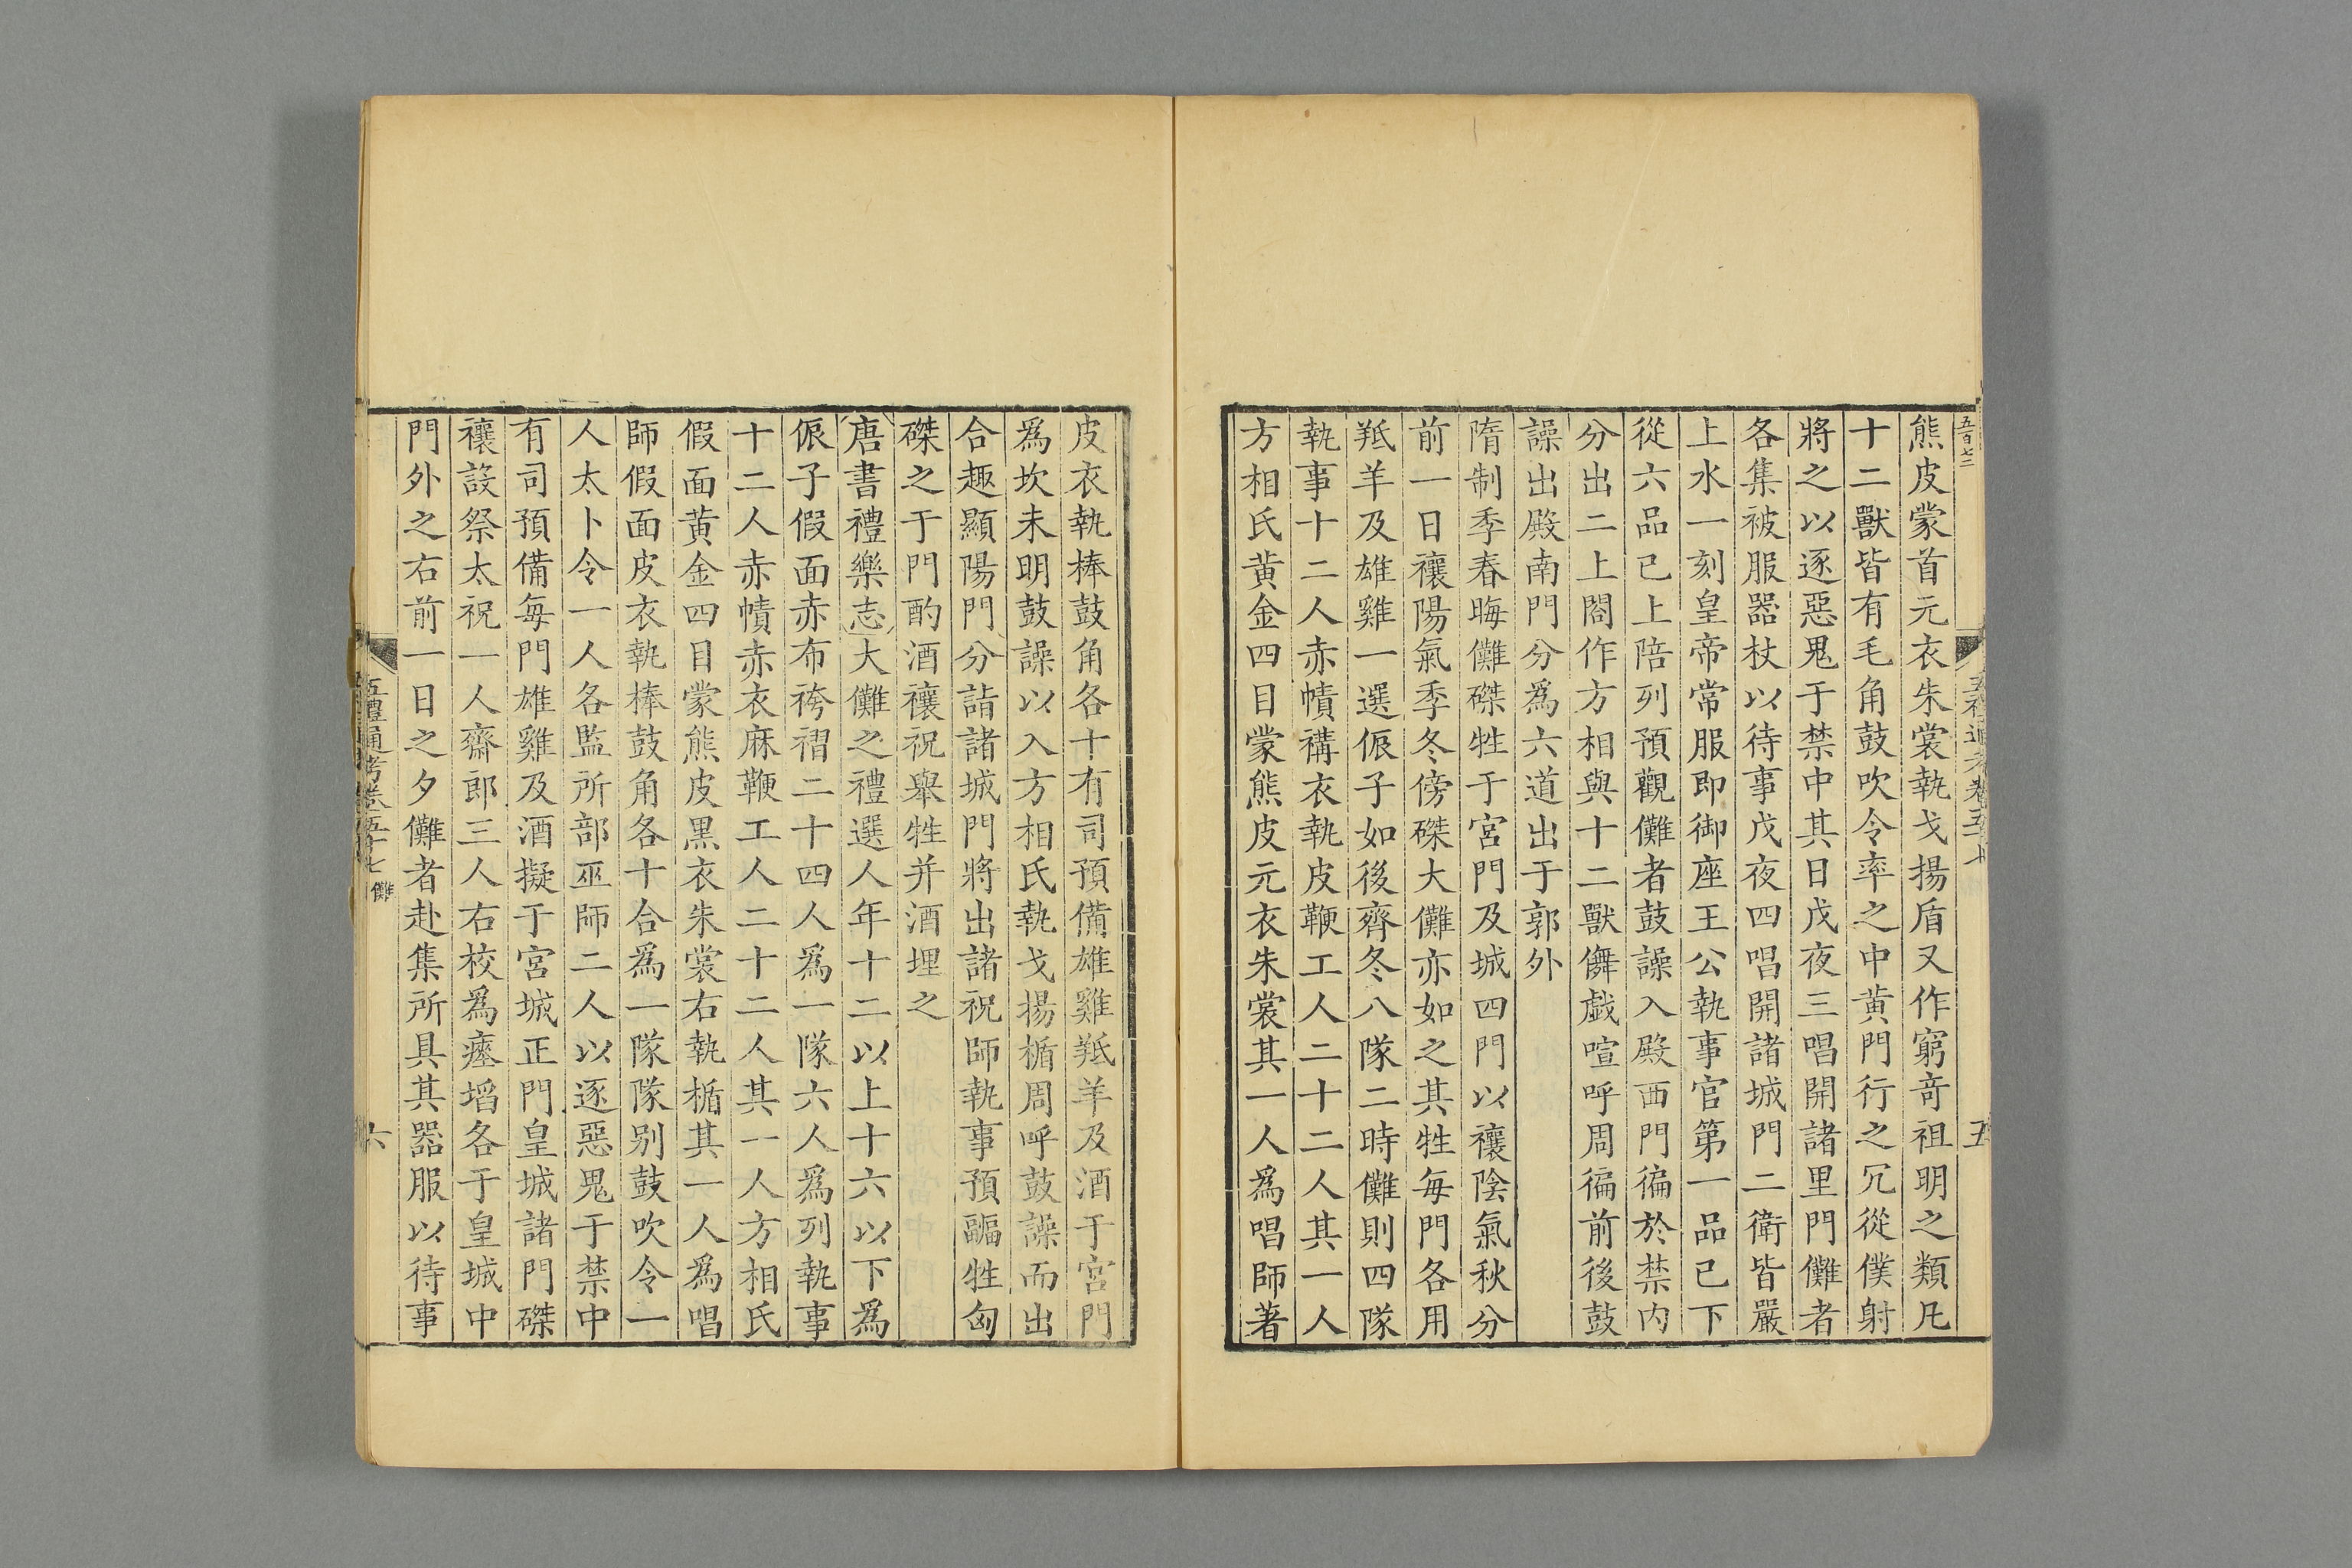 熊皮蒙首元衣朱裳執戈揚盾又作窮竒祖明之類凡
十二獸皆有毛角鼓吹令率之中黄門行之冗從僕射
將之以逐惡鬼于禁中其日戊夜三唱開諸里門儺者
各集被服器杖以待事戊夜四唱開諸城門二衛皆嚴
上水一刻皇帝常服即御座王公執事官第一品已下
從六品已上陪列預觀儺者鼓譟入殿西門徧於禁内
分出二上閤作方相與十二獸儛戲喧呼周徧前後鼓
譟出殿南門分爲六道出于郭外
隋制季春晦儺磔牲于宮門及城四門以禳陰氣秋分
前一日禳陽氣季冬傍磔大儺亦如之其牲每門各用
羝羊及雄雞一選侲子如後齊冬八隊二時儺則四隊
執事十二人赤幘褠衣執皮鞭工人二十二人其一人
方相氏黄金四目蒙熊皮元衣朱裳其一人爲唱師著
皮衣執棒鼓角各十有司預備雄雞羝羊及酒于宮門
爲坎未明鼓譟以入方相氏執戈揚楯周呼鼓譟而出
合趣顯陽門分詣諸城門將出諸祝師執事預疈牲匈
磔之于門酌酒禳祝舉牲并酒埋之
唐書禮樂志大儺之禮選人年十二以上十六以下爲
侲子假面赤布袴褶二十四人爲一隊六人爲列執事
十二人赤幘赤衣麻鞭工人二十二人其一人方相氏
假面黄金四目蒙熊皮黒衣朱裳右執楯其一人爲唱
師假面皮衣執棒鼓角各十合爲一隊隊别鼓吹令一
人太卜令一人各監所部巫師二人以逐惡鬼于禁中
有司預備每門雄雞及酒擬于宮城正門皇城諸門磔
禳設祭太祝一人齋郎三人右校爲瘞埳各于皇城中
門外之右前一日之夕儺者赴集所具其器服以待事
五禮通考卷五十七 儺 六